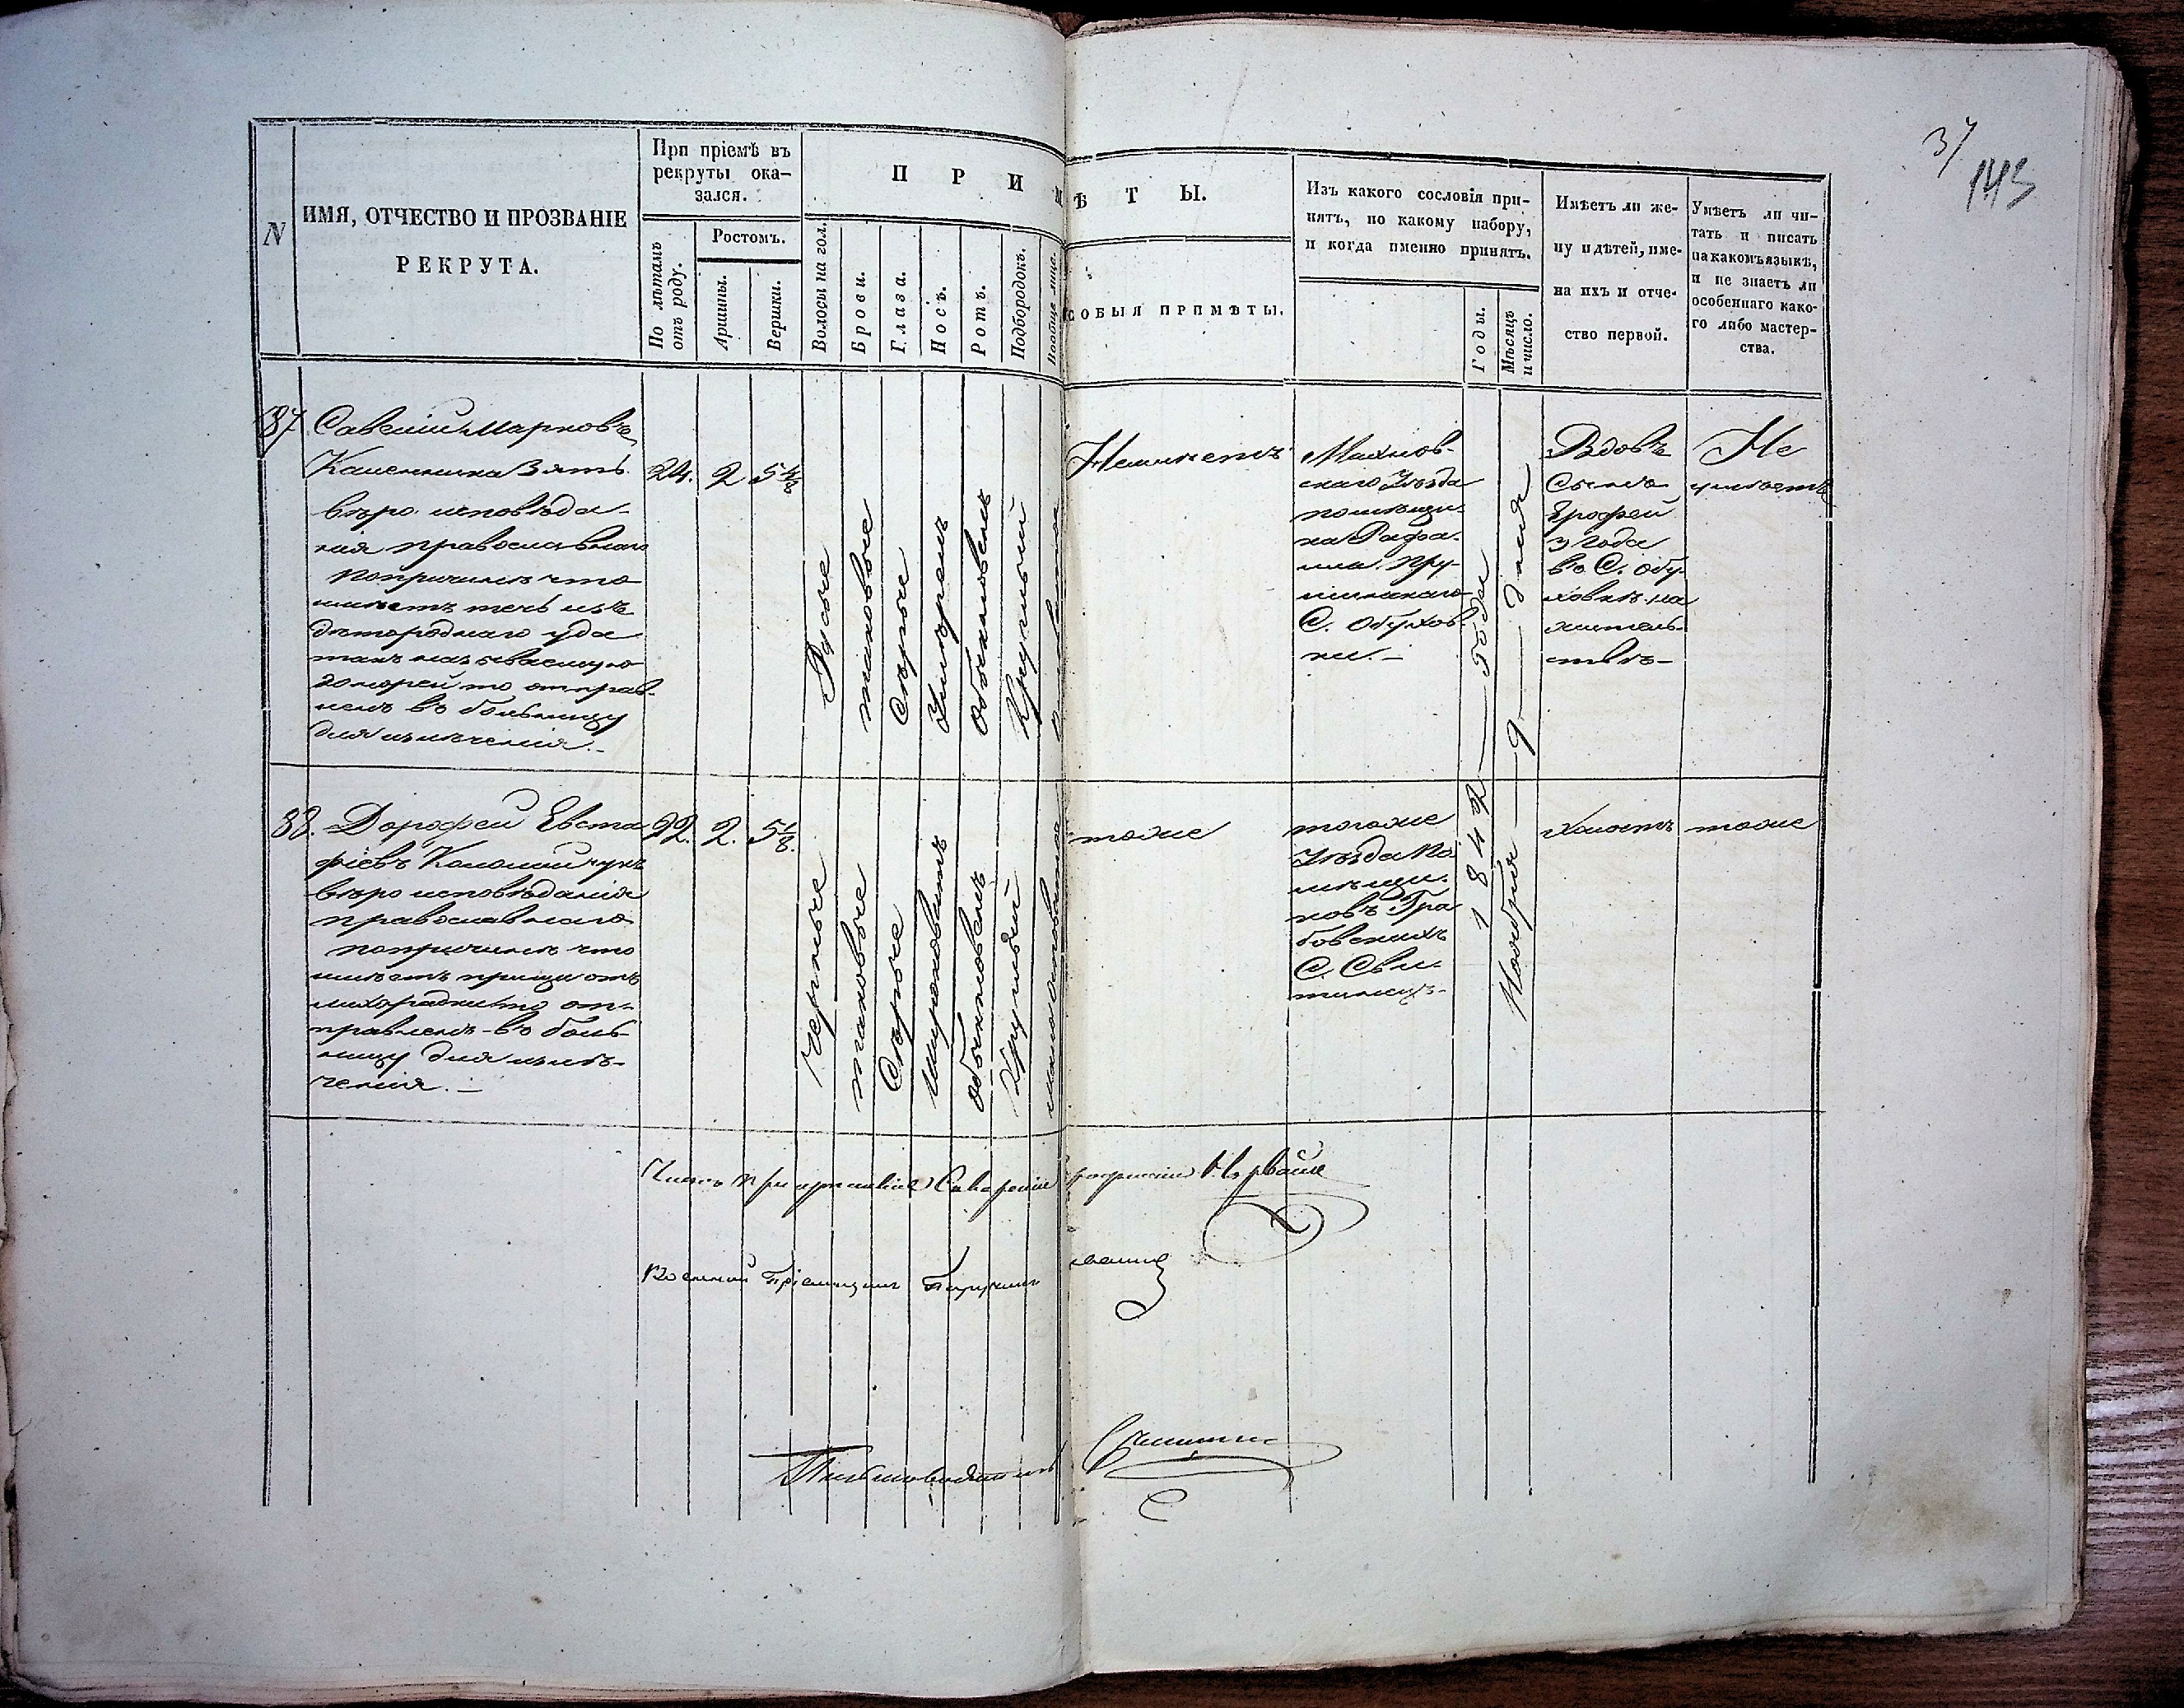 37
143
N
ИМЯ, ОТЧЕСТВО И ПРОЗВАНІЕ
РЕКРУТА.
При пріемѣ въ
рекруты ока-
зался.
По лѣтамъ
отъ роду.
Ростомъ.
Аршины.
Вершки.
ПРИМѢТЫ.
Волосы на гол.
Брови.
Глаза.
Носъ.
Ротъ.
Подбородокъ.
Вообще лице.
СОБЫЯ ПРИМѢТЫ.
Изъ какого сословія при-
нятъ, по какому набору,
и когда именно принятъ.
Годы.
Мѣсяцъ
и число.
Имѣетъ ли же-
ну и дѣтей, име-
на ихъ и отче-
ство первой.
Умѣетъ ли чи-
тать и писать
на какомъ языкѣ,
и не знаетъ ли
особеннаго како-
го либо мастер-
ства.
87
Савелій Марковъ
Каменника Зять
вѣро исповѣда-
нія православнаго
попричинѣ что
имѣетъ течь изъ
дѣтороднаго уда
такъ называемую
то отправ-
ленъ въ больницу
для излѣченія.-
24.
2
5 4/8
Русые
таковые
Сѣрые
Умѣренъ
обыкновенъ
Круглый
Неимѣетъ
Махнов-
скаго Уѣзда
помѣщи-
ка Рафа-
ила
С. Обухов-
ки.-
1842 - Года
Ноября - 9 - дня
Вдовъ
Сынъ
Ерофей
3 года
въ С. Обу-
ховкѣ на
житель-
ствѣ-
Не
умѣетъ
88.
Дорофей Евста
фіевъ
вѣро исповѣданія
православнаго
попричинѣ что
имѣетъ прищи отъ
лихорадки то от-
правленъ въ боль-
ницу для излѣ-
ченія.-
22.
2.
5 1/8.
Черные
таковые
Сѣрые
Широковатъ
обыкновенъ
Круглый
тоже
тогоже
Уѣзда По
мѣщи-
ковъ Гра
бовскихъ
С.
Холостъ
тоже
Военный Пріемщикъ